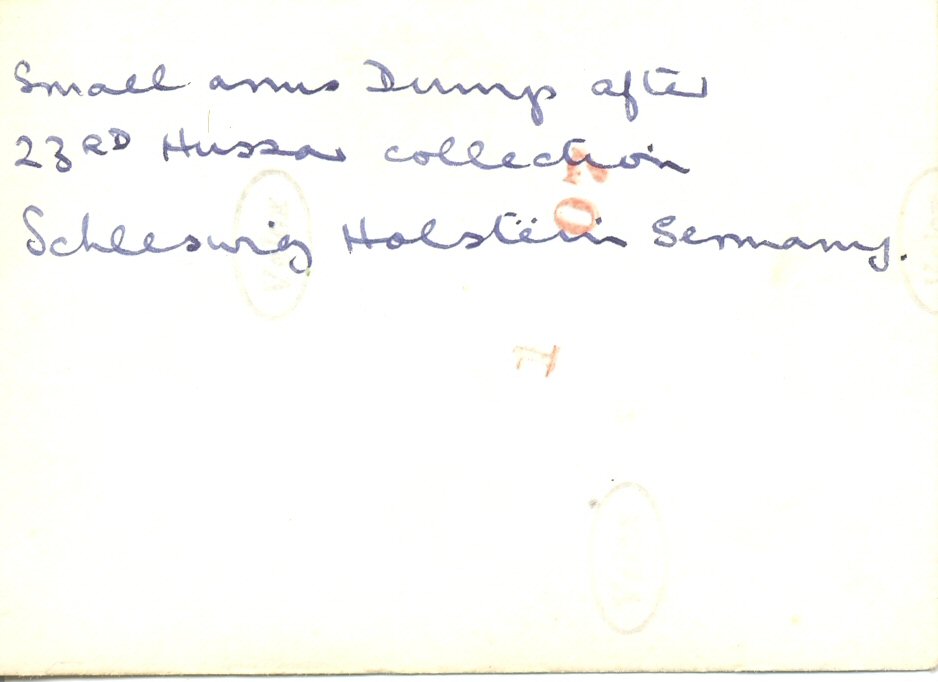 Small arms Dump after
23RD Hussar collection
Schleswig Holstein Germany.